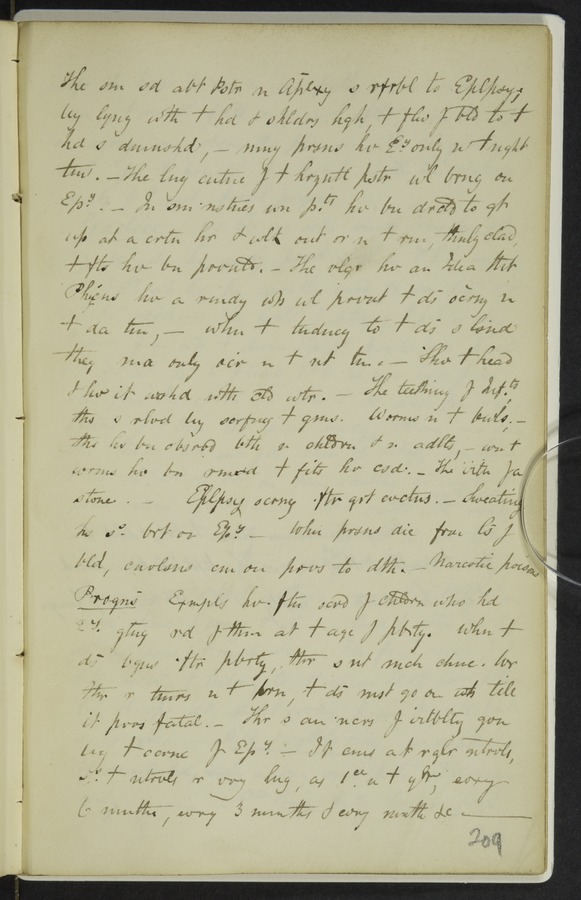 The sm sd abt Pstr n Aplexy s rfrbl to Eplpsy;
by lyng wth † hd & shldrs hgh, † flw f bld to †
hd s dmnshd, – mny prsns hv Epy only n † night
tm. – The lng cntnc f † hrzntl pstr wl brng on
Epy. – In sm nstncs wn pts hv bn drctd to gt
up at a crtn hr & wlk out or n † rm, thnly clad,
† fts hv bn prvntd. – The vlgr hv an Idea tht
Phcns hv a rmdy wh wl prvnt † ds ocrng n
† da tm, – whn † tndncy to † ds s lsnd
they ma only ocr n † nt tm. – Shv † head
& hv it wshd wth cld wtr. – The teething f Infts
ths s rlvd by scrfng † gms. Worms n † bwls. –
ths hs bn obsrvd bth n chldrn & n adlts, – wn †
worms hv bn rmvd † fits hv csd. – The
stone. – Eplpsy ocrng ftr grt evctns. – Sweating
hs brt on Epy – When prsns die from ls f
bld, cnvlsns cm on prvs to dth. – Narcotic poisons
Progns Exmpls hv ftn ocrd f chldrn who hd
Epy. gtng rd f thm at † age f pbrty. When †
ds bgns ftr pbrty, thr s nt mch chnc. Whr
thr r tmrs n † brn, † ds mst go on till
it prvs fatal. – Thr s an ncrs f irtblty gon
by † acrnc f Epy. – It cms at rglr ntrvls,
& † ntrvls r vry lng, as 1ce n † yr, evry
6 months, evry 3 months & evry month &c —
209